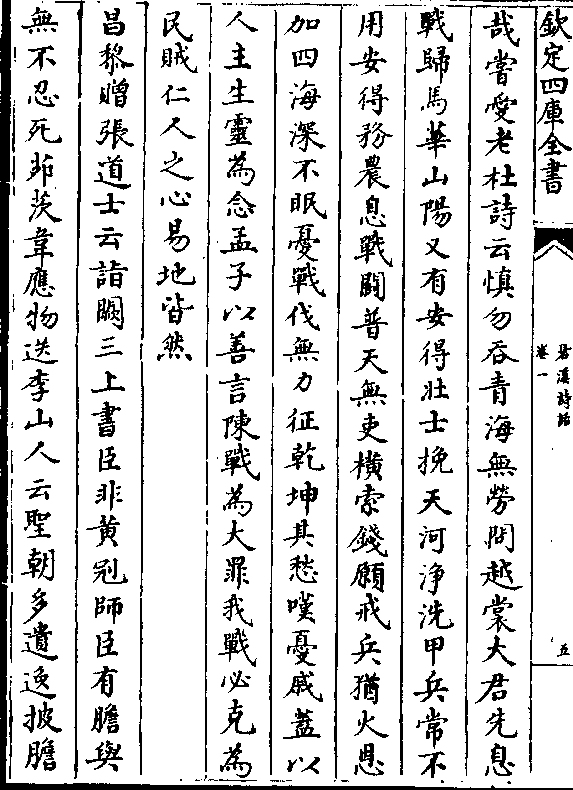 欽定四庫全書
㕲溪詩話
卷一
五
哉嘗愛老杜詩云慎勿吞青海無勞問越裳大君先息
戰歸馬華山陽又有安得壯士挽天河淨洗甲兵常不
用安得務農息戰鬪普天無吏橫索錢願戒兵猶火恩
加四海深不眠憂戰伐無力征乾坤其愁嘆憂戚蓋以
人主生靈為念孟子以善言陳戰為大罪我戰必克為
民賊仁人之心易地皆然
昌黎贈張道士云詣闕三上書臣非黄冠師臣有膽與
無不忍死茆茨韋應物送李山人云聖朝多遺逸披膽